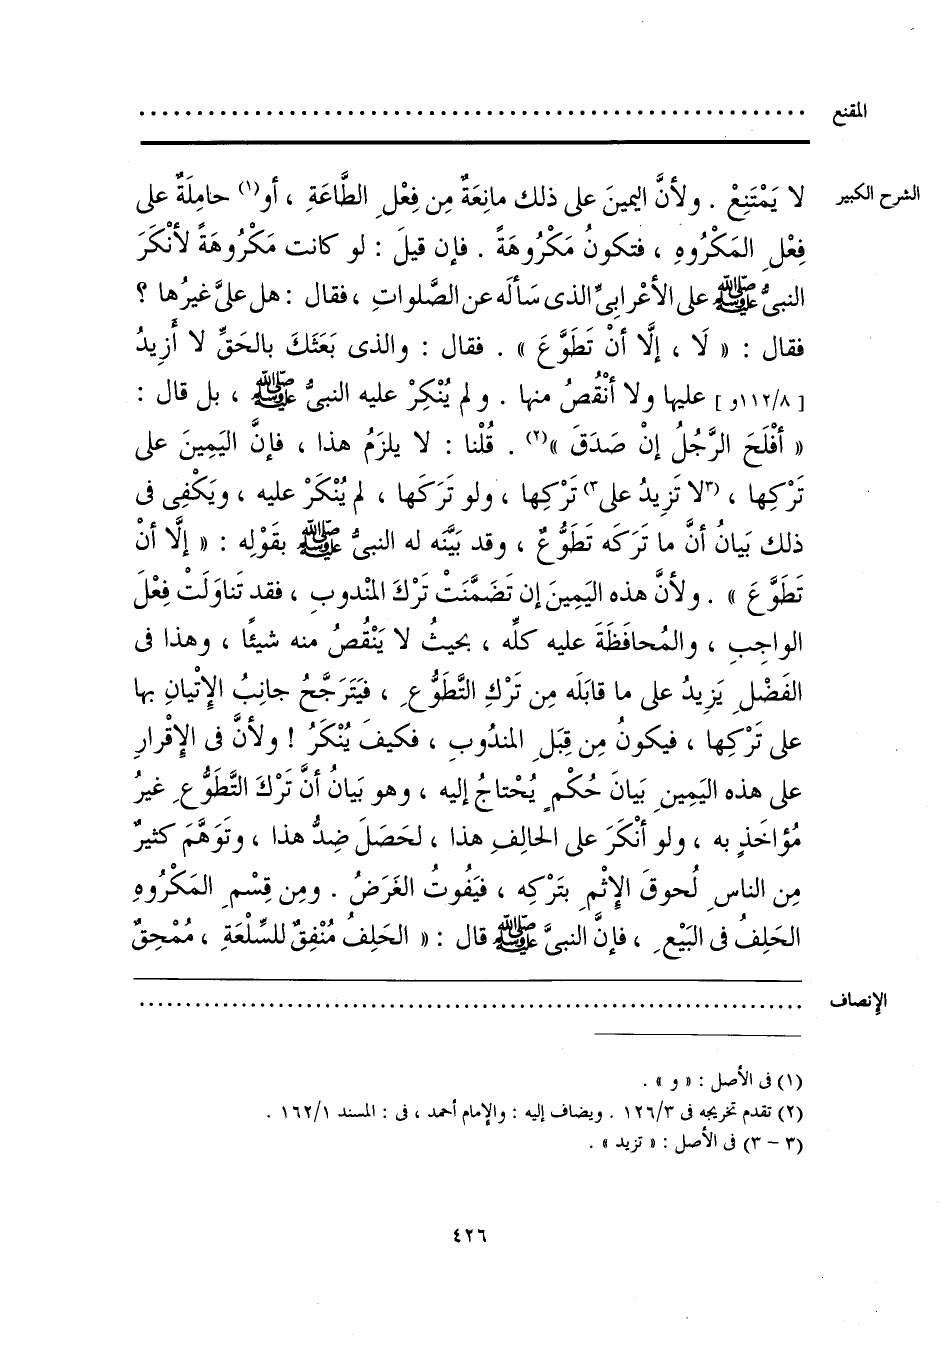 المقنع ........................................................
الشرح الكبير لا يَمْتَنِعْ . ولأنَّ اليمينَ على ذلك مانِعَةٌ مِن فِعْلِ الطَّاعَةِ ، أو(١) حامِلَةٌ على
فِعْلِ المَكْرُوهِ ، فتكونُ مَكْرُوهَةً . فإن قيلَ : لو كانت مَكْرُوهَةً لأنْكَرَ
النبىُّ ﷺ على الأعْرابِىِّ الذى سَألَه عن الصَّلواتِ ، فقال : هل علىَّ غيرُها ؟
فقال : « لَا ، إلَّا أنْ تَطَوَّعَ » . فقال : والذى بَعَثَكَ بالحَقِّ لا أَزِيدُ
[ ١١٢/٨و ] عليها ولا أنْقُصُ منها . ولم يُنْكِرْ عليه النبىُّ ﷺ ، بل قال :
« أفْلَحَ الرَّجُلُ إنْ صَدَقَ »(٢) . قُلْنا : لا يلزَمُ هذا ، فإنَّ اليَمِينَ على
تَرْكِها ، (٣لا تَزِيدُ على٣) تَرْكِها ، ولو تَرَكَها ، لم يُنْكَرْ عليه ، ويَكْفِى فى
ذلك بَيانُ أنَّ ما تَرَكَه تَطَوُّعٌ ، وقد بَيَّنَه له النبىُّ ﷺ بقَوْلِه : « إلَّا أنْ
تَطَوَّعَ » . ولأنَّ هذه اليَمِينَ إن تَضَمَّنَتْ تَرْكَ المْندوبِ ، فقد تَناوَلَتْ فِعْلَ
الواجِبِ ، والمُحافَظَةَ عليه كلِّه ، بحيثُ لا يَنْقُصُ منه شيئًا ، وهذا فى
الفَضْلِ يَزِيدُ على ما قابَلَه مِن تَرْكِ التَّطَوُّعِ ، فيَتَرَجَّحُ جانِبُ الإِتْيانِ بها
على تَرْكِها ، فيكونُ مِن قِبَلِ المندُوبِ ، فكيفَ يُنْكَرُ ! ولأنَّ فى الإِقْرارِ
على هذه اليَمِينِ بَيانَ حُكْمٍ يُحْتاجُ إليه ، وهو بَيانُ أنَّ تَرْكَ التَّطَوُّعِ غيرُ
مُؤاخَذٍ به ، ولو أنْكَرَ على الحالِفِ هذا ، لحَصَلَ ضِدُّ هذا ، وتَوَهَّمَ كثيرٌ
مِن الناسِ لُحوقَ الإِثْمِ بتَرْكِه ، فيَفُوتُ الغَرَضُ . ومِن قِسْمِ المَكْرُوهِ
الحَلِفُ فى البَيْعِ ، فإنَّ النبىَّ ﷺ قال : « الحَلِفُ مُنْفِقٌ للسِّلْعَةِ ، مُمْحِقٌ
الإنصاف ........................................................
(١) فى الأصل : « و » .
(٢) تقدم تخريجه فى ١٢٦/٣ . ويضاف إليه : والإمام أحمد ، فى : المسند ١٦٢/١ .
(٣ – ٣) فى الأصل : « تزيد » .
٤٢٦